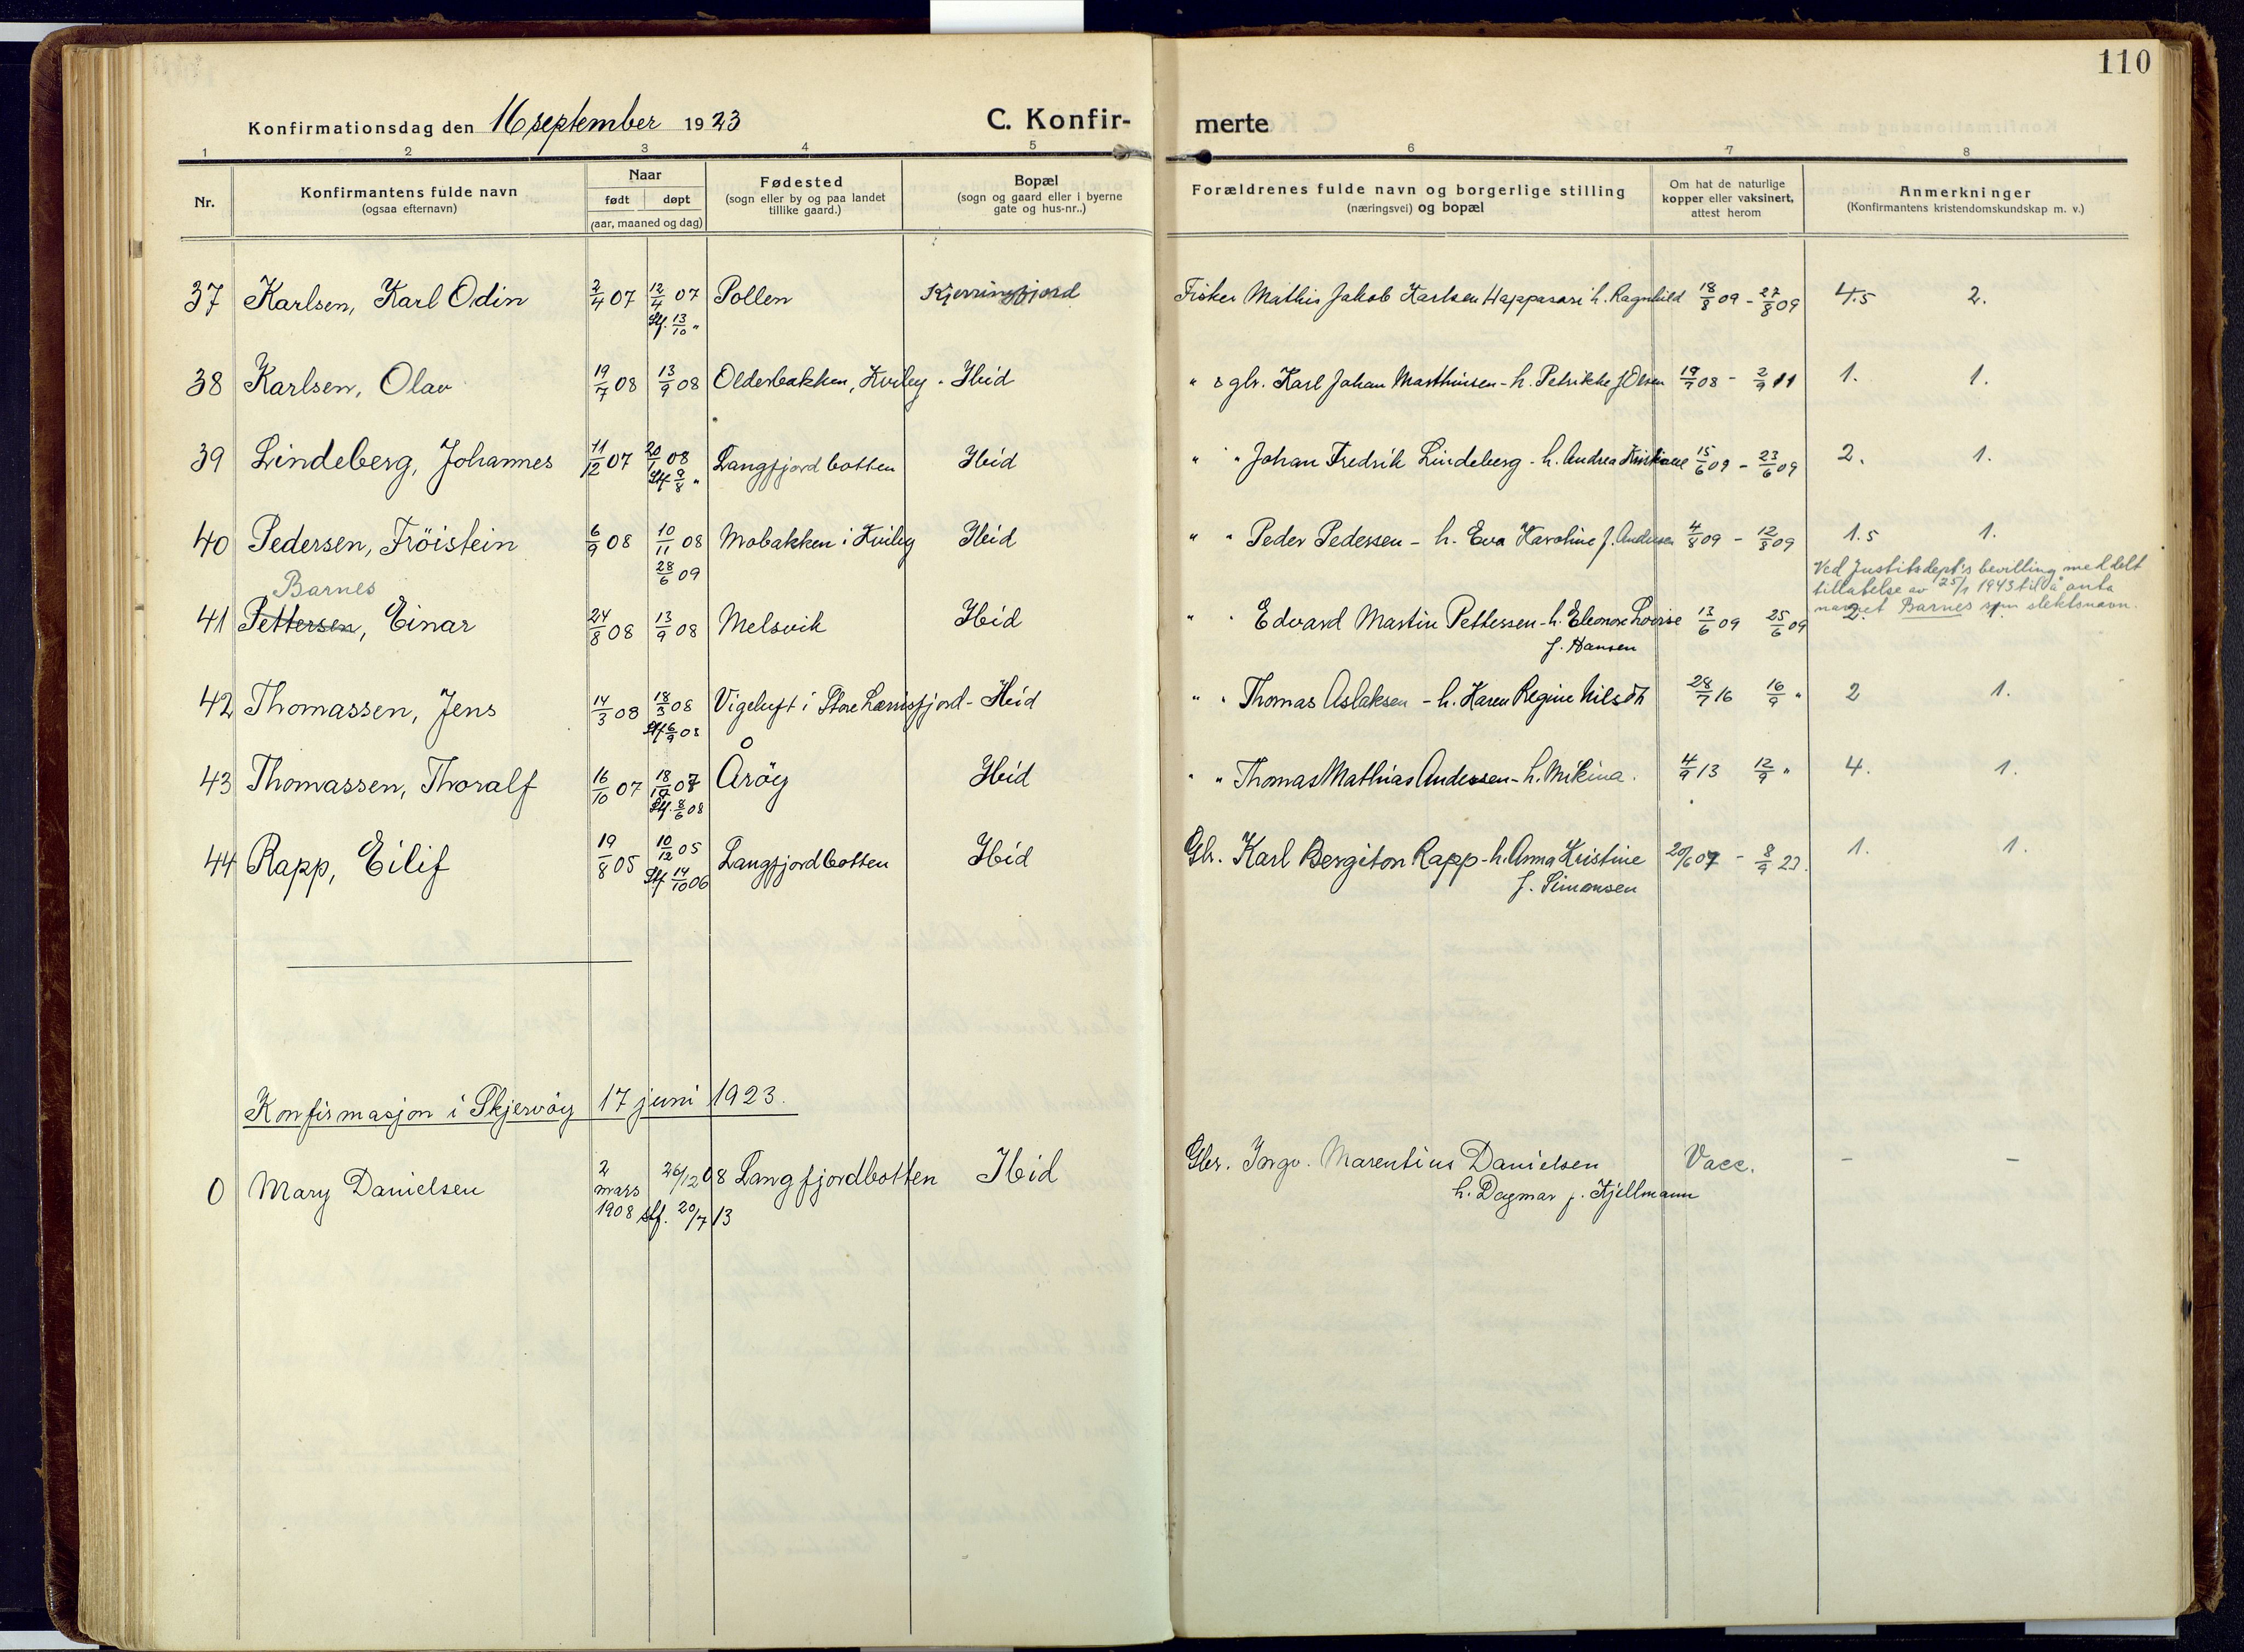 110
Konfirmationsdag den 16 september 1923 C. Konfir- merte
1 2 3 4 5 6 7 8
Nr. Konfirmantens fulde navn (ogsaa efternavn) Naar født døpt (aar, maaned og dag) Fødested (sogn eller by og paa landet tillike gaard.) Bopæl (sogn og gaard eller i byerne gate og hus-nr..) Forældrenes fulde navn og borgerlige stilling (næringsvei) og bopæl Om hat de naturlige kopper eller vaksinert, attest herom Anmerkninger (Konfirmantens kristendomskundskap m. v.)
37 Karlsen, Karl Odin 2/4 07 12/4 07 Pollen Kjerringfjord Fisker Mathis Jakob Karlsen Happasari h. Ragnhild 18/8 09 - 27/8 09 4.5 2.
Stf. 13/10 "
38 Karlsen, Olav 19/7 08 13/9 08 Olderbakken, Kviby - Ibid " & gbr. Karl Johan Marthinsen - h. Petrikke f Olsen 19/7 08 - 2/9 11 1. 1.
39 Lindeberg, Johannes 11/12 07 20/1 08 Langfjordbotten Ibid " " Johan Fredrik Lindeberg - h. Andrea 15/6 09 - 23/6 09 2. 1.
Stf 9/8 "
40 Pedersen, Fröistein 6/9 08 10/11 08 Mobakken i Kviby Ibid " " Peder Pedersen - h. Eva Karoline f. Andersen 4/8 09 - 12/8 09 1.5 1.
28/6 09
Ved Justitsdept's bevilling meddelt
tillatelse av 25/1 1943 til å anta
navnet Barnes som slektsnavn.
Barnes
41 Pettersen, Einar 24/8 08 13/9 08 Melsvik Ibid " " Edvard Martin Pettersen - h. Eleonore Lovise 13/6 09 25/6 09 2. 1.
f. Hansen
42 Thomassen, Jens 14/3 08 18/3 08 Vigeluft i Store Lerrisfjord - Ibid " " Thomas Aslaksen - h. Karen Regine Nilsdtr 28/7 16 16/9 " 2 1.
Stf 6/9 08
43 Thomassen, Thoralf 16/10 07 18/12 07 Åröy Ibid " " Thomas Mathias Andersen - h. Mikina. 4/9 13 12/9 " 4. 1.
Stf. 8/6 08
44 Rapp, Eilif 19/8 05 10/12 05 Langfjordbotten Ibid Gbr. Karl Bergiton Rapp - h. Anna Kristine 20/6 07 - 8/9 23. 1. 1.
Stf 14/10 06 f. Simonsen
Konfirmasjon i Skjervöy 17 juni 1923.
0 Mary Danielsen 2 mars 1908 26/12 08 Langfjordbotten Ibid Gbr. Ingv. Marentius Danielsen Vacc. - -
stf. 20/7 13 h. Dagmar f. Kjellmann